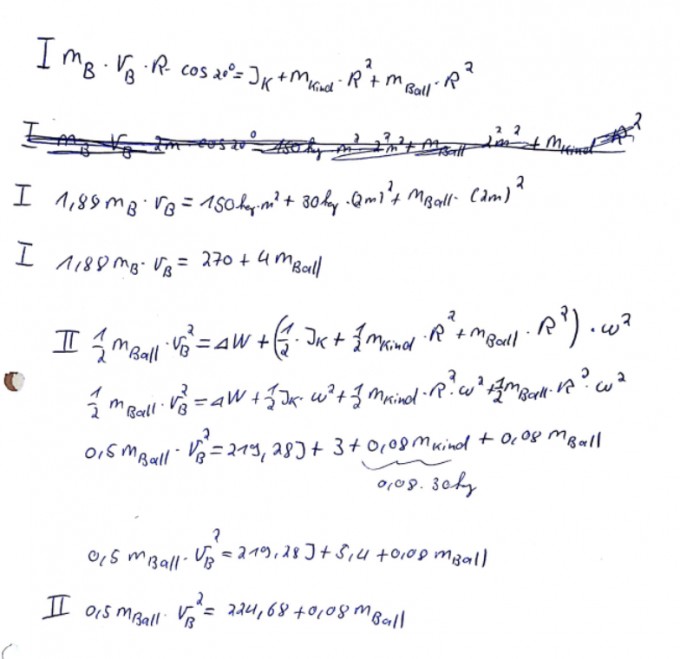 I m_B · V_B · R · cos 20° = J_K + m_Kind · R² + m_Ball · R²
I m_B V_B 2m cos 20° 150kg m² 2²m² + m_Ball 2²m² + m_Kind R²
I 1,89 m_B · V_B = 150 kg·m² + 30 kg · (2m)² + m_Ball · (2m)²
I 1,88 m_B · V_B = 270 + 4 m_Ball
II ½ m_Ball · V_B² = ΔW + (½ · J_K + ½ m_Kind · R² + m_Ball · R²) · ω²
½ m_Ball · V_B² = ΔW + ½ J_K · ω² + ½ m_Kind · R² · ω² + ½ m_Ball · R² · ω²
0,5 m_Ball · V_B² = 219,28 J + 3 + 0,08 m_Kind + 0,08 m_Ball
0,08 · 30kg
0,5 m_Ball · V_B² = 219,28 J + 5,4 + 0,08 m_Ball
II 0,5 m_Ball · V_B² = 224,68 + 0,08 m_Ball